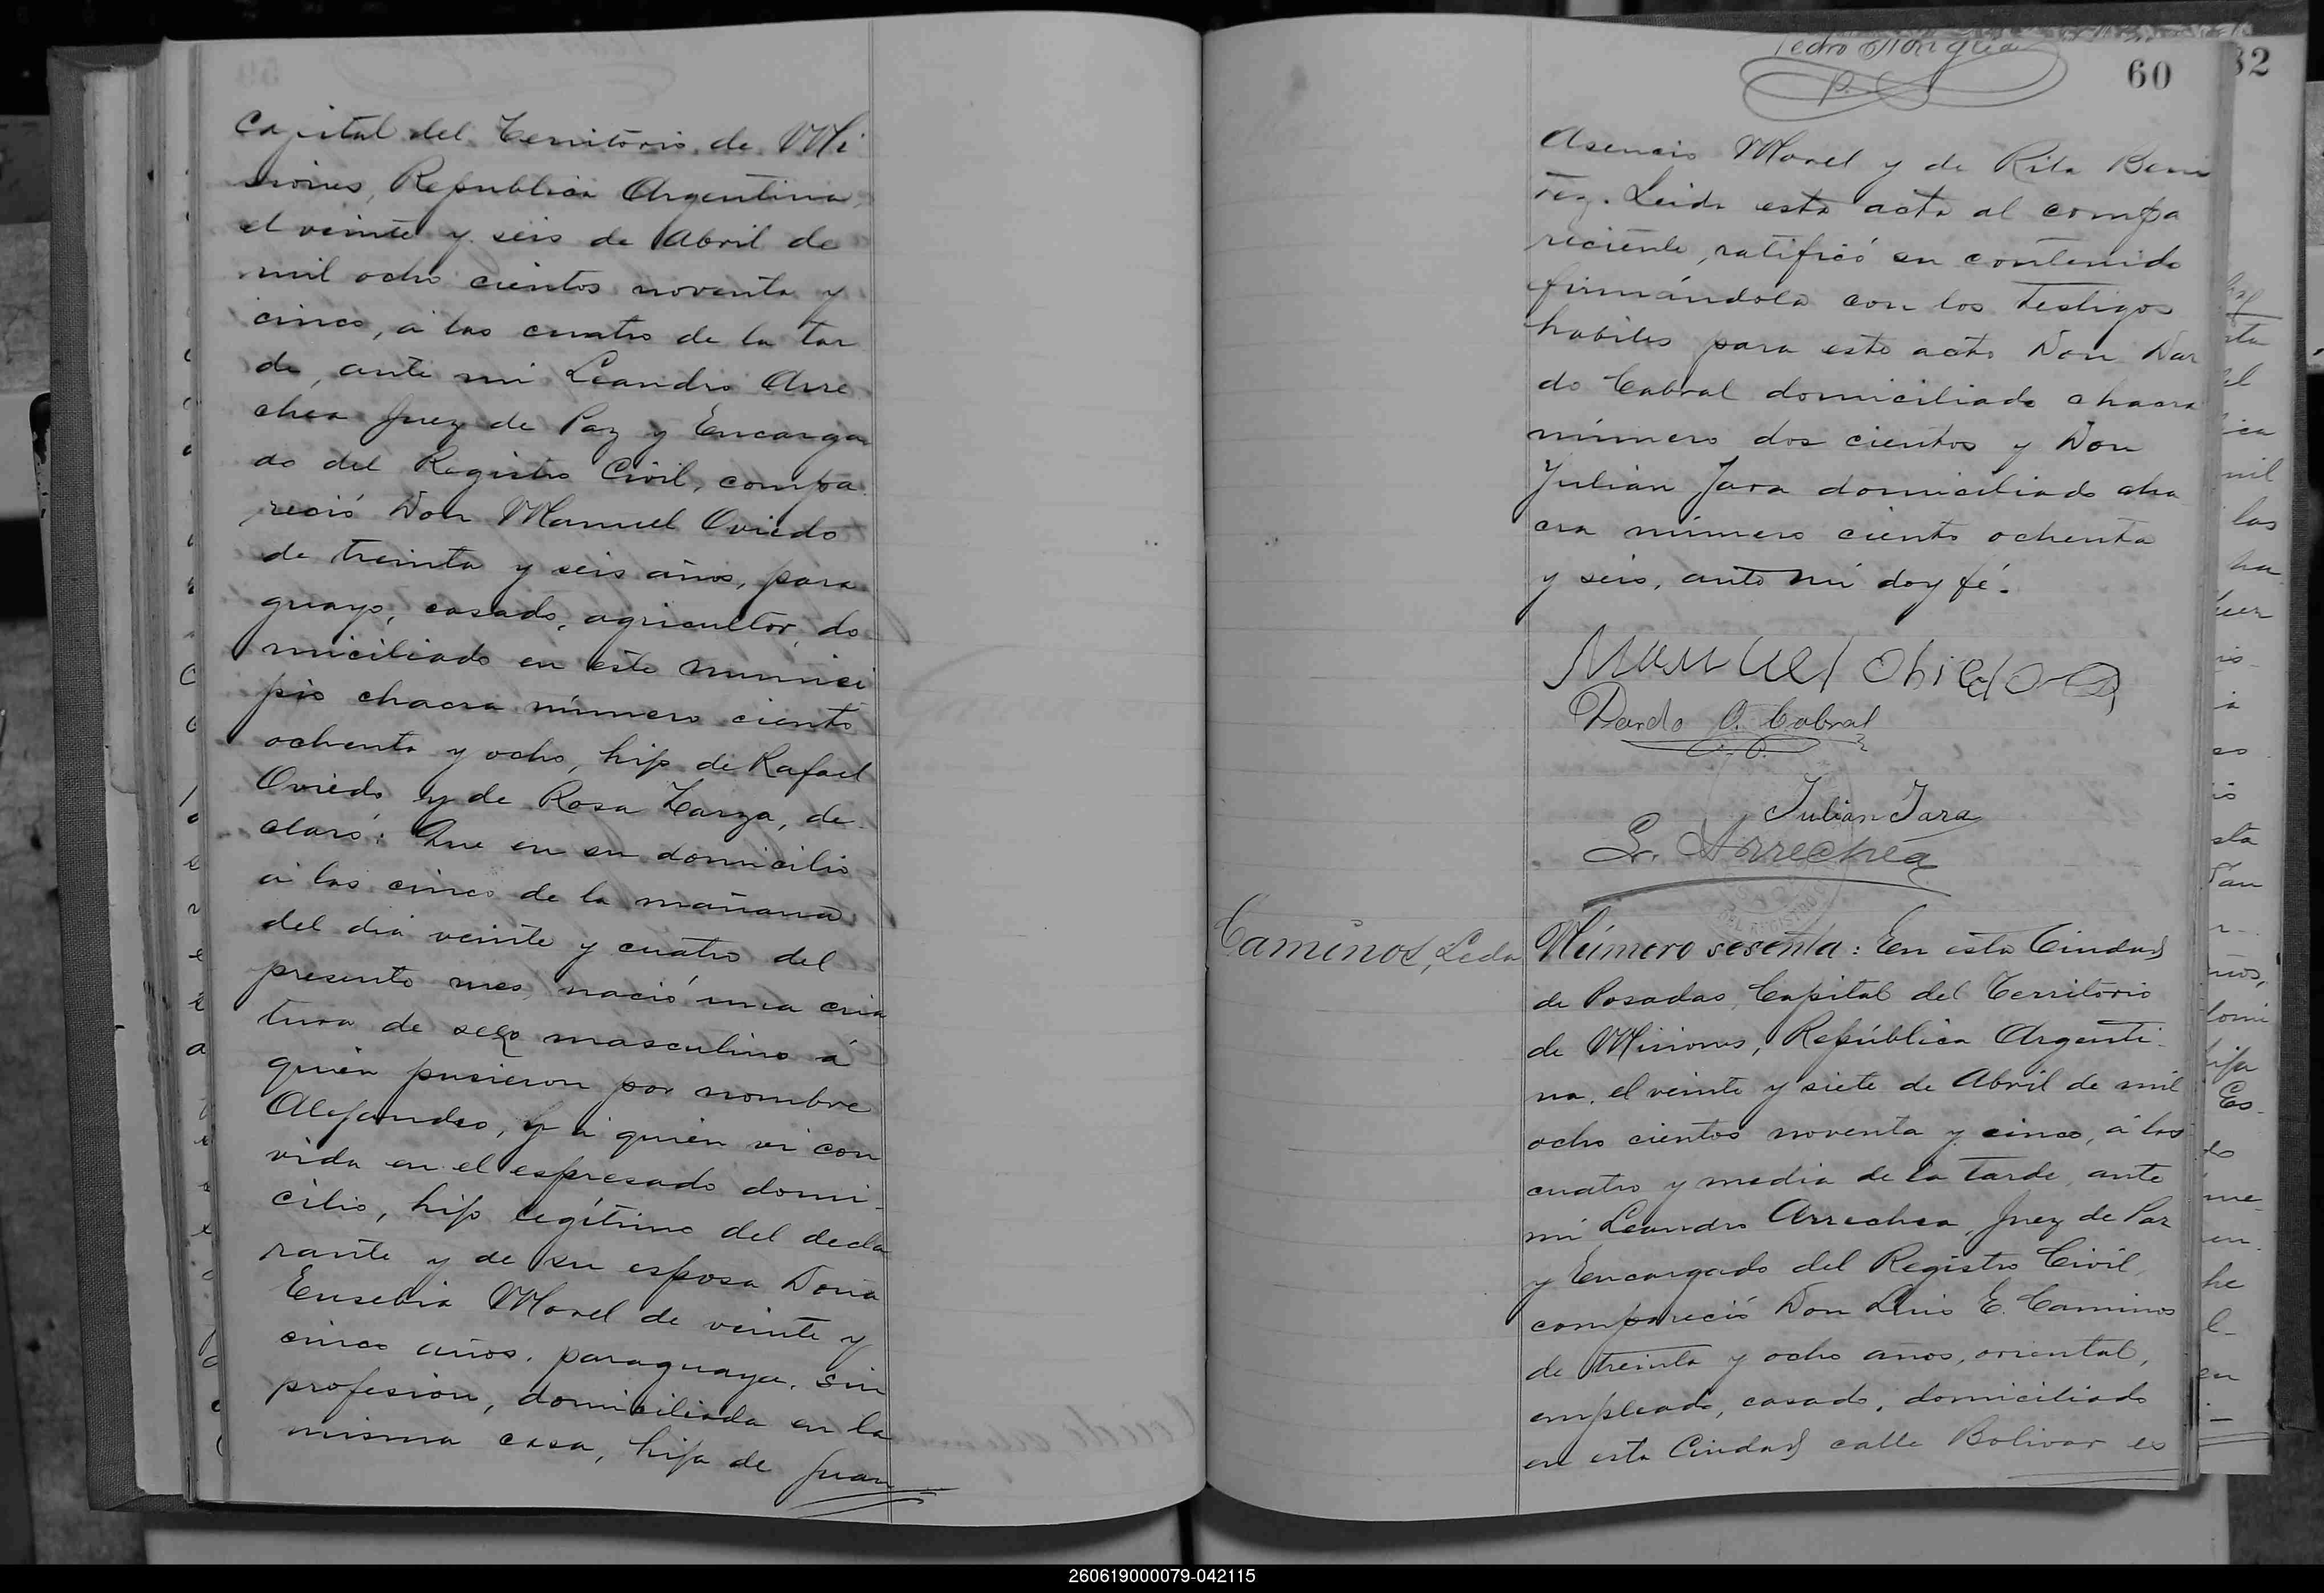 Capital del Territorio de Mi
siones, Republica Argentina,
el veinte y seis de Abril de
mil ocho cientos noventa y
cinco, á las cuatro de la tar
de, ante mi Leandro Arre
chea Juez de Paz y Encarga
do del Registro Civil, compa
reció Don Manuel Oviedo
de treinta y seis años, para
guayo, casado, agricultor, do
miciliado en este munici
pio chacra número ciento
ochenta y ocho, hijo de Rafael
Oviedo y de Rosa Zarza, de
claró: Que en su domicilio
á las cinco de la mañana
del dia veinte y cuatro del
presente mes, nació una cria
tura de sexo masculino á
quien pusieron por nombre
Alejandro, y á quien vi con
vida en el espresado domi-
cilio, hijo legítimo del decla
rante y de su esposa Doña
Eusebia Morel de veinte y
cinco años, paraguaya, sin
profesion, domiciliada en la
misma casa, hija de Juan
60
82
Asencio Morel y de Rita Beni
tez. Leida esta acta al compa
reciente, ratificó su contenido
firmándola con los testigos
habiles para este acto Don Dar
do Cabral domiciliado chacra
número dos cientos y Don
Julian Jara domiciliado cha
cra número ciento ochenta
y seis, ante mí doy fé.
Manuel Obiedo
Dardo O. Cabral
Julian Jara
L. Arrechea
Caminos, Leda
Número sesenta: En esta Ciudad
de Posadas, Capital del Territorio
de Misiones, República Argenti-
na, el veinte y siete de Abril de mil
ocho cientos noventa y cinco, á las
cuatro y media de la tarde, ante
mi Leandro Arrechea, Juez de Paz
y Encargado del Registro Civil,
compareció Don Luis E. Caminos
de treinta y ocho años, oriental,
empleado, casado, domiciliado
en esta Ciudad calle Bolivar es
260619000079-042115